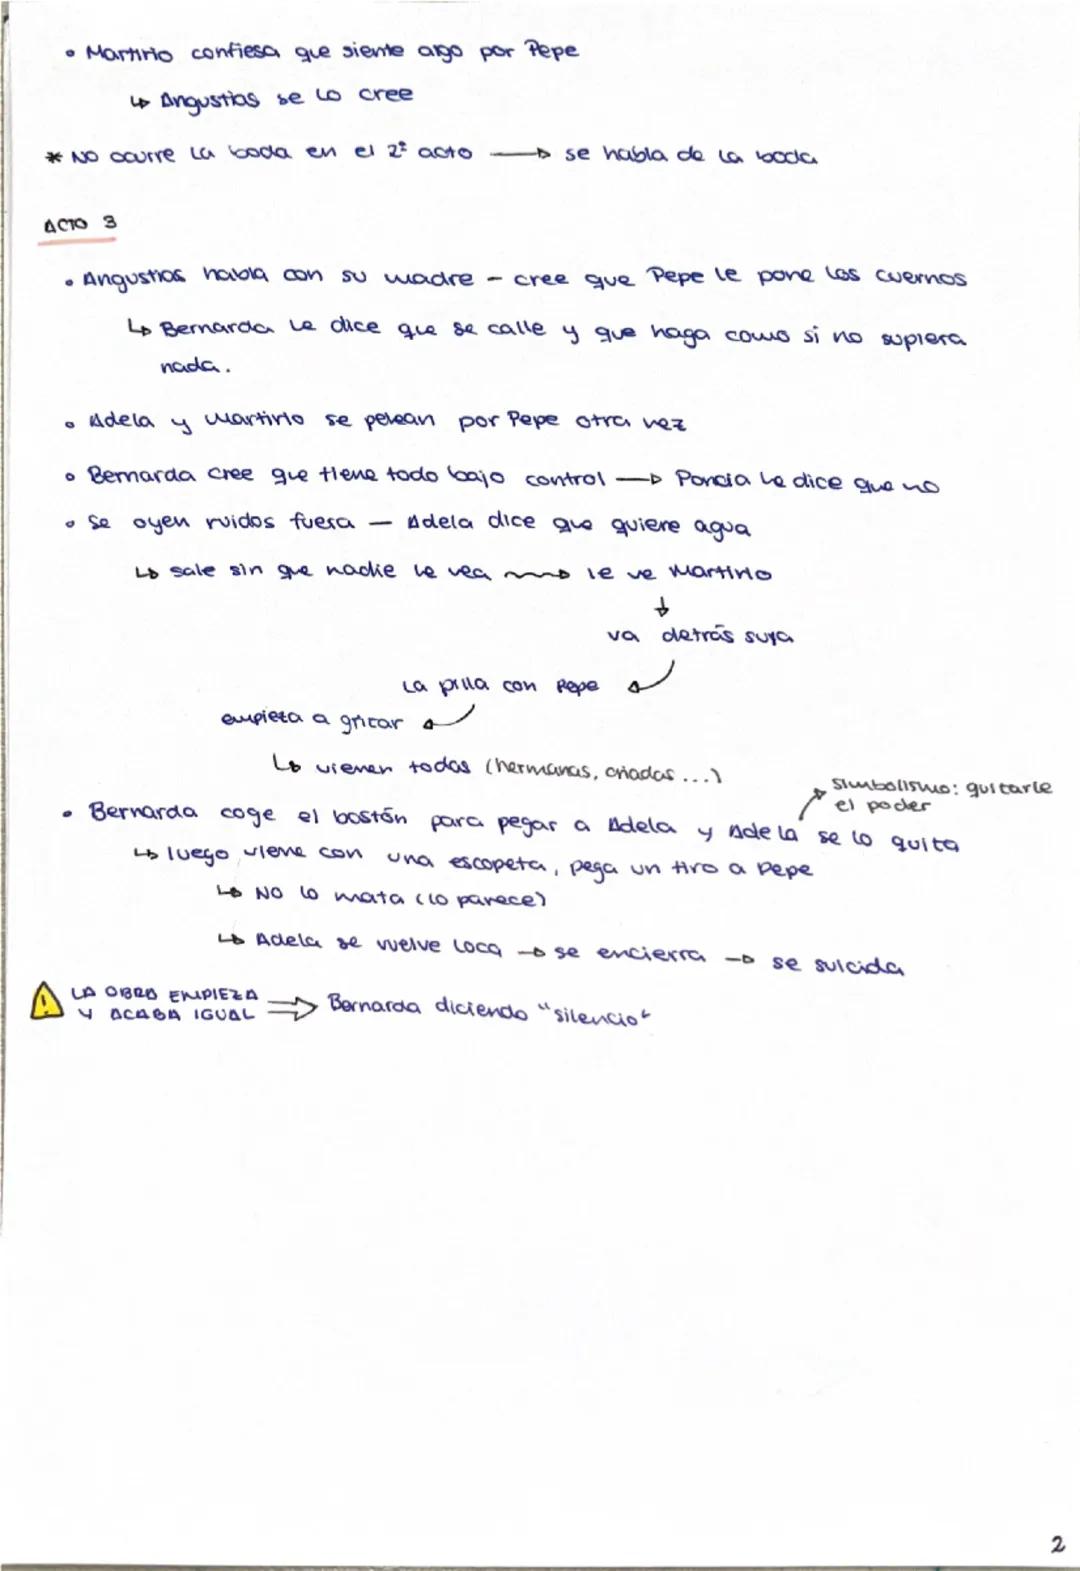 • Martirio confiesa que siente algo por Pepe
↳ Angustias se lo cree
* NO ocurre la boda en el 2º acto → se habla de la boda
ACTO 3
• Angustias habla con su madre - cree que Pepe le pone los cuernos
↳ Bernarda le dice que se calle y que haga como si no supiera
nada.
• Adela y Martirio se pelean por Pepe otra vez
• Bernarda cree que tiene todo bajo control → Poncia le dice que no
• Se oyen ruidos fuera — Adela dice que quiere agua
↳ sale sin que nadie le vea → le ve Martirio
↓
va detrás suya
la pilla con Pepe
empieza a gritar
↳ vienen todas (hermanas, criadas...)
simbolismo: quitarle
el poder
• Bernarda coge el bastón para pegar a Adela y Adela se lo quita
↳ luego viene con una escopeta, pega un tiro a Pepe
↳ NO lo mata (lo parece)
↳ Adela se vuelve loca → se encierra → se suicida
! LA OBRA EMPIEZA
Y ACABA IGUAL ⇒ Bernarda diciendo "silencio"
2